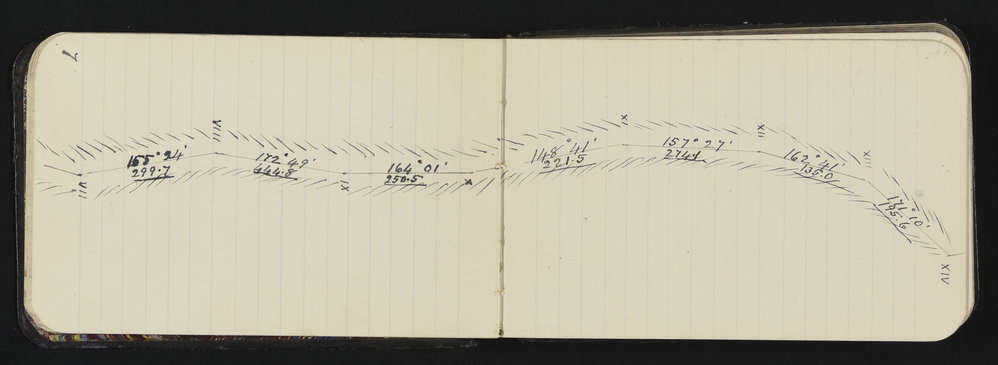 7
VII
155° 24'
299.7
VIII
172° 49'
444.8
IX
164° 01'
250.5
X
148° 41'
221.5
XI
157° 27'
274.1
XII
162° 41'
135.0
XIII
171° 10'
195.6
XIV